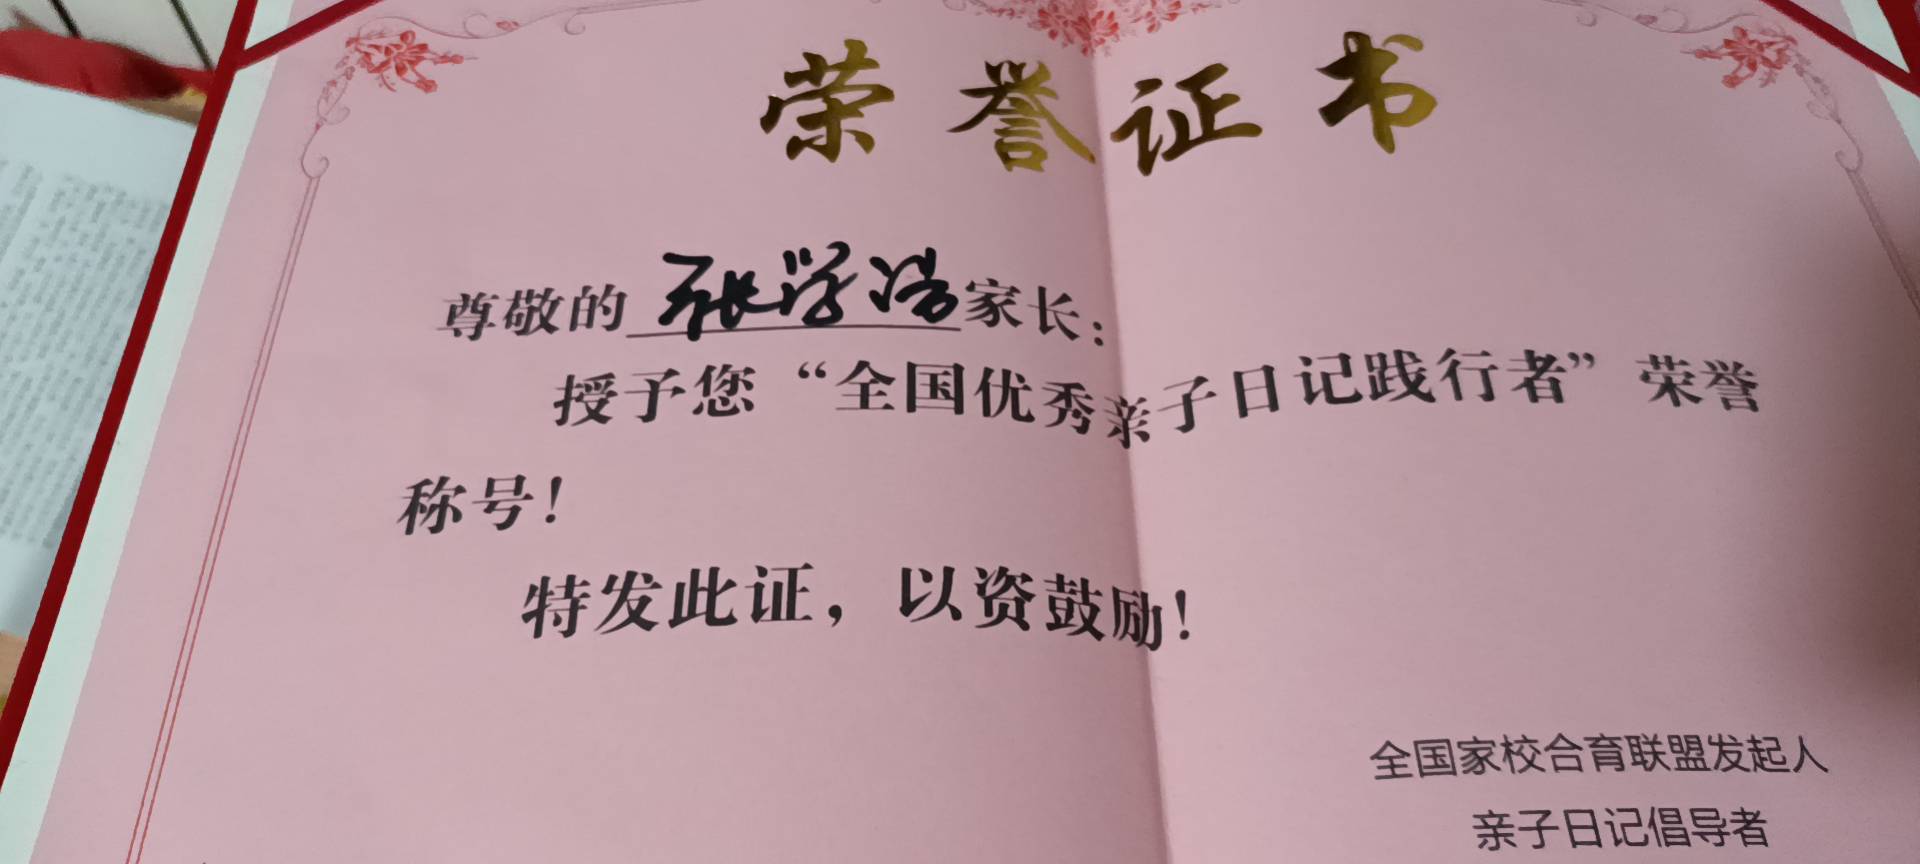 荣誉证书
尊敬的张学浩家长：
授予您“全国优秀亲子日记践行者”荣誉
称号！
特发此证，以资鼓励！
全国家校合育联盟发起人
亲子日记倡导者